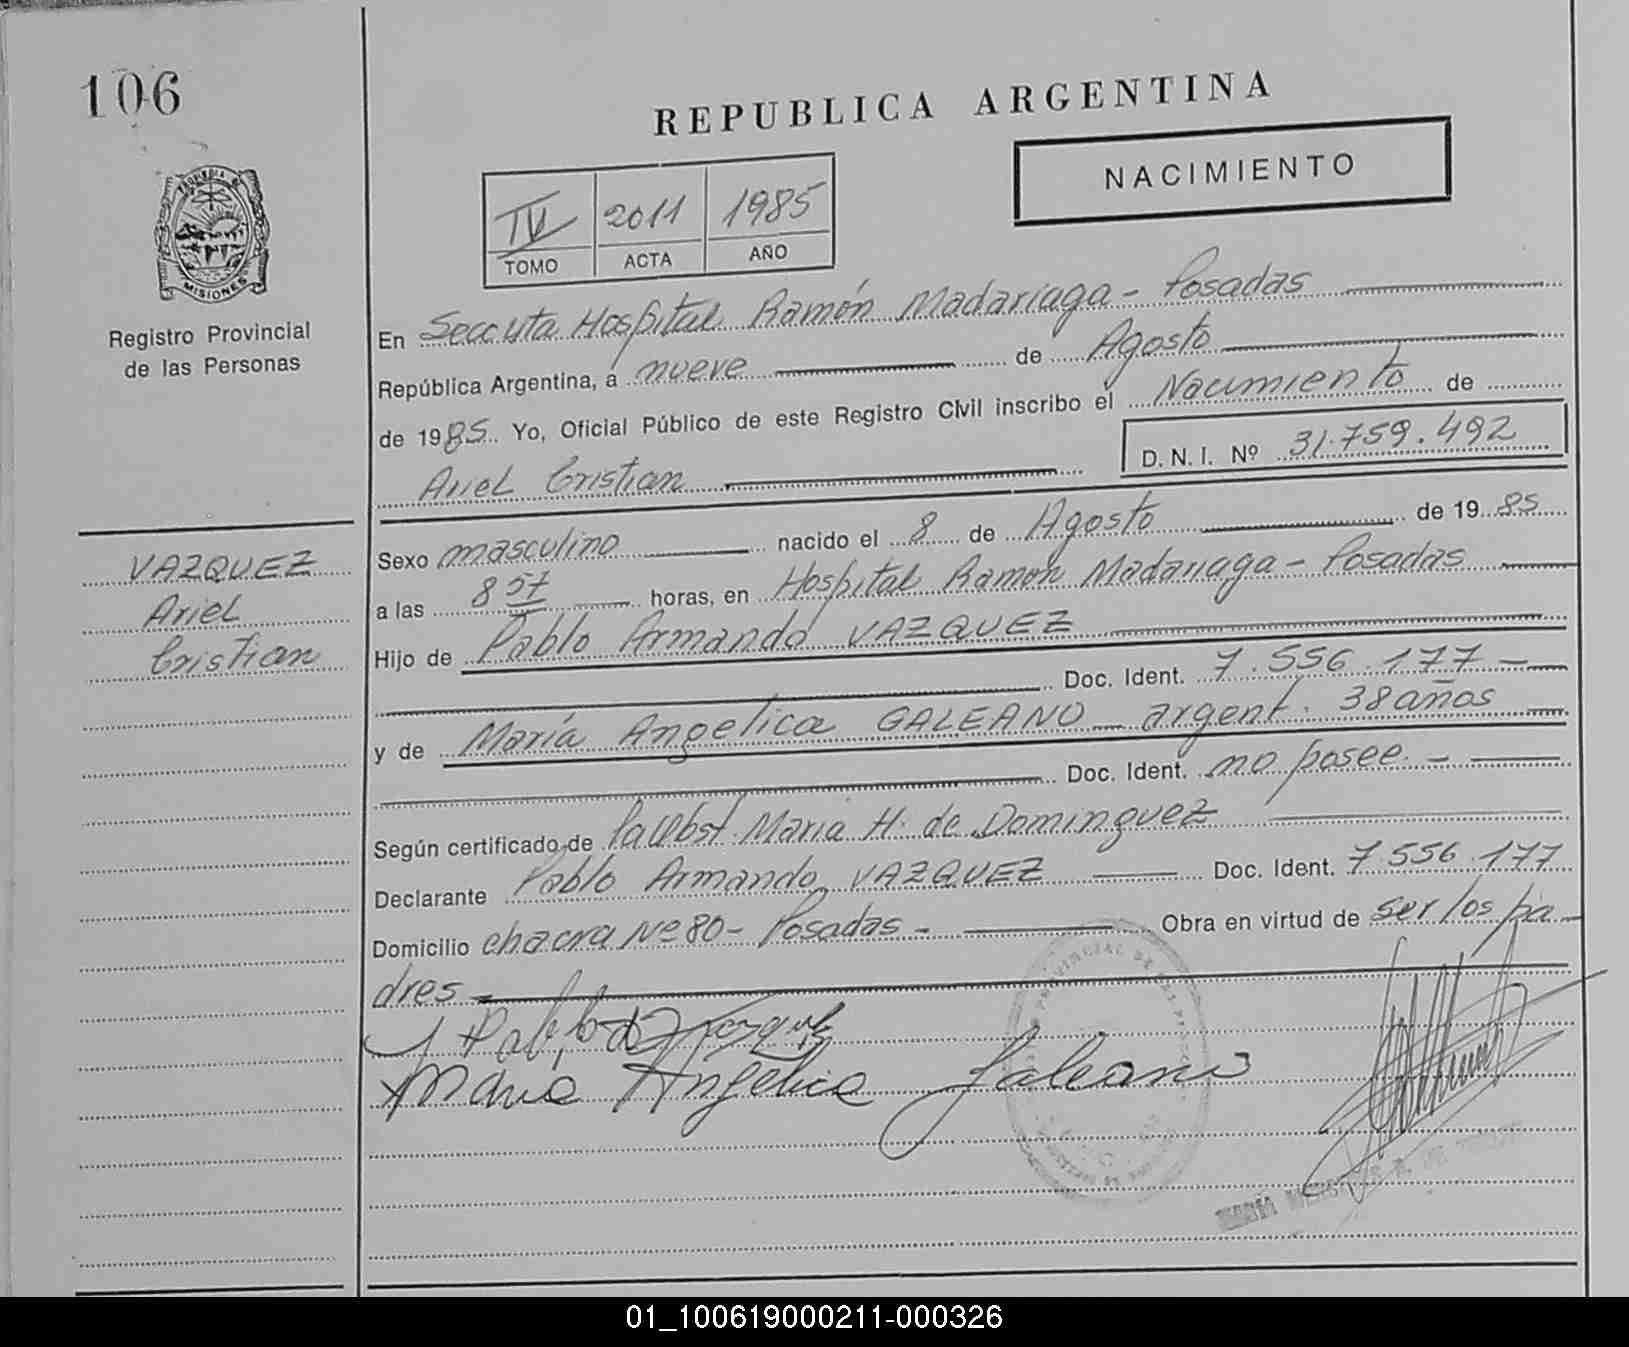 106
REPUBLICA ARGENTINA
NACIMIENTO
IV 2011 1985
TOMO ACTA AÑO
PROVINCIA DE
MISIONES
Registro Provincial
de las Personas
En Secc uta Hospital Ramón Madariaga - Posadas
República Argentina, a nueve de Agosto
de 1985 Yo, Oficial Público de este Registro Civil inscribo el Nacimiento de
D. N. I. Nº 31.759.492
Ariel Cristian
VAZQUEZ
Ariel
Cristian
Sexo masculino nacido el 8 de Agosto de 1985
a las 8 57 horas, en Hospital Ramon Madariaga - Posadas
Hijo de Pablo Armando VAZQUEZ
Doc. Ident. 7.556.177 -
y de María Angelica GALEANO argent. 38 años
Doc. Ident. no posee. -
Según certificado de María H. de Dominguez
Declarante Pablo Armando VAZQUEZ Doc. Ident. 7.556.177
Domicilio chacra Nº 80 - Posadas - Obra en virtud de ser los pa
dres -
Pablo A Vazquez
Maria Angelica Galeano
01_100619000211-000326